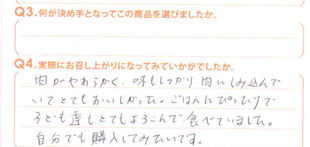 Q3.何が決め手となってこの商品を選びましたか。
Q4.実際にお召し上がりになってみていかがでしたか。
肉がやわらかく、味もしっかり肉にしみ込んで
いてとてもおいしかった。ごはんにぴったりで
子ども達もとてもよろこんで食べていました。
自分でも購入してみたいです。